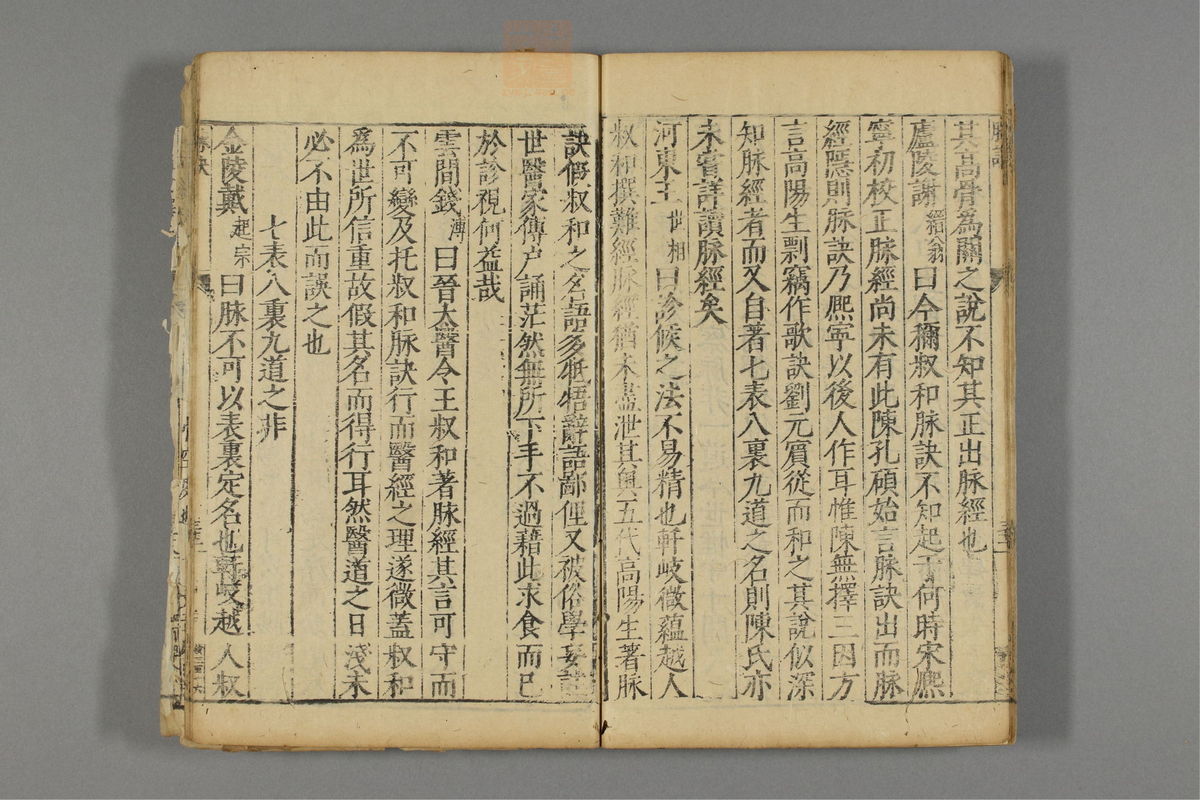 其高骨為關之說不知其正出脉經也
廬陵謝縉翁曰今稱叔和脉訣不知起于何時宋熈
寧初校正脉經尚未有此陳孔碩始言脉訣出而脉
經隱則脉訣乃熈寧以後人作耳惟陳無擇三因方
言高陽生剽竊作歌訣劉元賓從而和之其說似深
知脉經者而又自著七表八裏九道之名則陳氏亦
未嘗詳讀脉經矣
河東王世相曰診候之法不易精也軒岐微蘊越人
叔和撰難經脉經猶未盡泄其奧五代高陽生著脉
訣假叔和之名語多牴牾辭語鄙俚又被俗學妄註
世醫家傳户誦茫然無所下手不過藉此求食而已
於診視何益哉
雲間錢溥曰晉太醫令王叔和著脉經其言可守而
不可變及托叔和脉訣行而醫經之理遂微蓋叔和
為世所信重故假其名而得行耳然醫道之日淺未
必不由此而誤之也
七表八裏九道之非
金陵戴起宗曰脉不可以表裏定名也軒岐越人叔